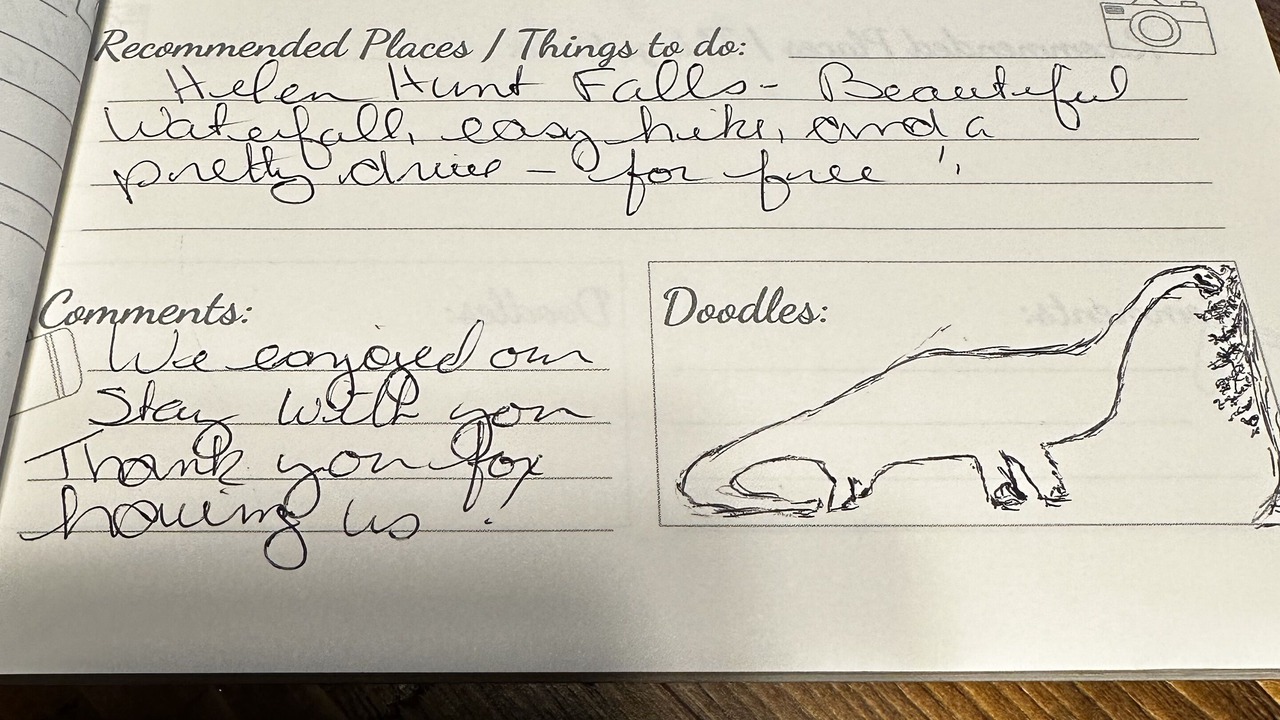 Recommended Places / Things to do:
Helen Hunt Falls - Beautiful
Waterfall, easy hike, and a
pretty drive - for free!
Comments:
We enjoyed our
Stay with you
Thank you for
having us!
Doodles: